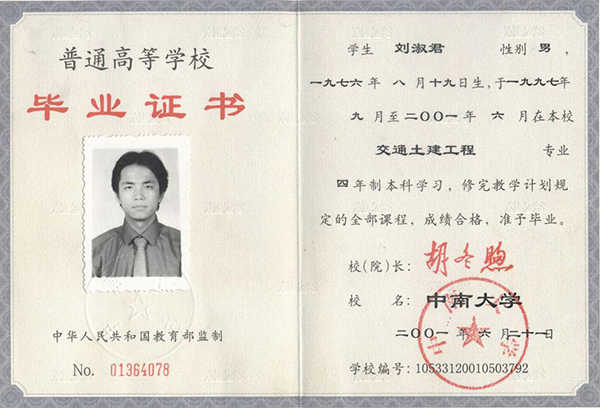 普通高等学校
毕业证书
中华人民共和国教育部监制
No. 01364078
学生 刘淑君 性别 男，
一九七六年 八 月十九日生，于一九九七年
九 月至二〇〇一年 六 月在本校
交通土建工程 专业
四 年制本科学习，修完教学计划规
定的全部课程，成绩合格，准予毕业。
校（院）长：胡冬煦
校 名：中南大学
二〇〇一 年 六 月二十一日
学校编号：10533120010503792